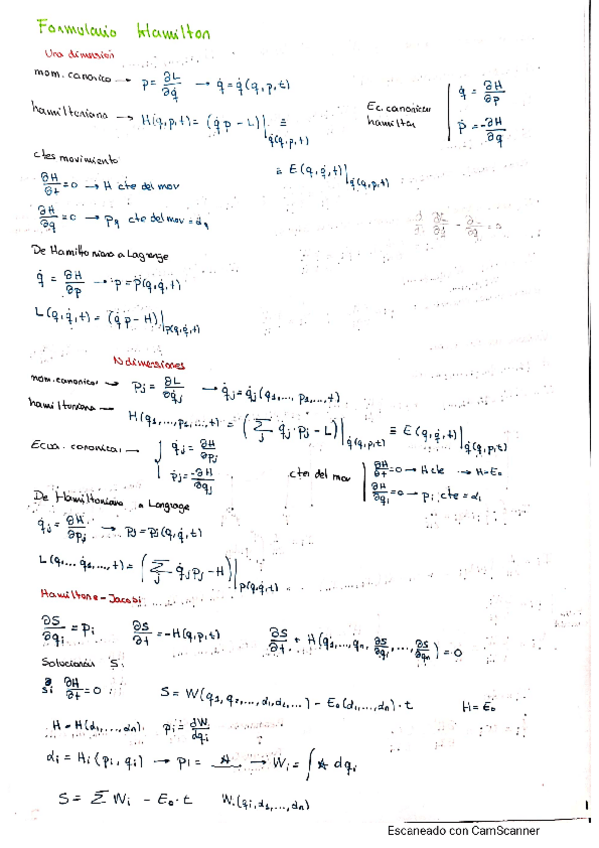 Formulario Hamilton
Una dimensión
mom. canónico → p = ∂L/∂q̇ → q̇ = q̇(q, p, t)
hamiltoniano → H(q, p, t) = (q̇ p − L)|q̇(q, p, t) ≡
≡ E(q, q̇, t)|q̇(q, p, t)
Ec. canonicas hamilton
q̇ = ∂H/∂p
ṗ = −∂H/∂q
ctes movimiento
∂H/∂t = 0 → H cte del mov
∂H/∂q = 0 → p cte del mov = α
De Hamiltoniano a Lagrange
q̇ = ∂H/∂p → p = p(q, q̇, t)
L(q, q̇, t) = (q̇ p − H)|p(q, q̇, t)
N dimensiones
mom. canonico → pj = ∂L/∂q̇j → q̇j = q̇j(q1, ..., p1, ..., t)
hamiltoniano → H(q1, ..., p1, ..., t) = (∑j q̇j pj − L)|q̇(q, p, t) ≡ E(q, q̇, t)|q̇(q, p, t)
Ecua. canonicas → q̇j = ∂H/∂pj
ṗj = −∂H/∂qj
ctes del mov
∂H/∂t = 0 → H cte → H = E0
∂H/∂qi = 0 → pi cte = αi
De Hamiltoniano a Langrage
q̇j = ∂H/∂pj → pj = pj(q, q̇, t)
L(q1 ... q̇1, ..., t) = (∑j q̇j pj − H)|p(q, q̇, t)
Hamiltone-Jacobi
∂S/∂qi = pi
∂S/∂t = −H(q, p, t)
∂S/∂t + H(q1, ..., qn, ∂S/∂q1, ..., ∂S/∂qn) = 0
Solucionar S.
si ∂H/∂t = 0
S = W(q1, q2, ..., α1, α2, ...) − E0(α1, ..., αn) · t
H = E0
H = H(α1, ..., αn) pi = dWi/dqi
αi = Hi(pi, qi) → pi = ☆ → Wi = ∫ ☆ dqi
S = ∑ Wi − E0 · t Wi(qi, α1, ..., αn)
Escaneado con CamScanner